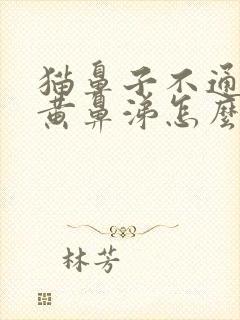 猫鼻子不通
黄鼻涕怎麼
林芳